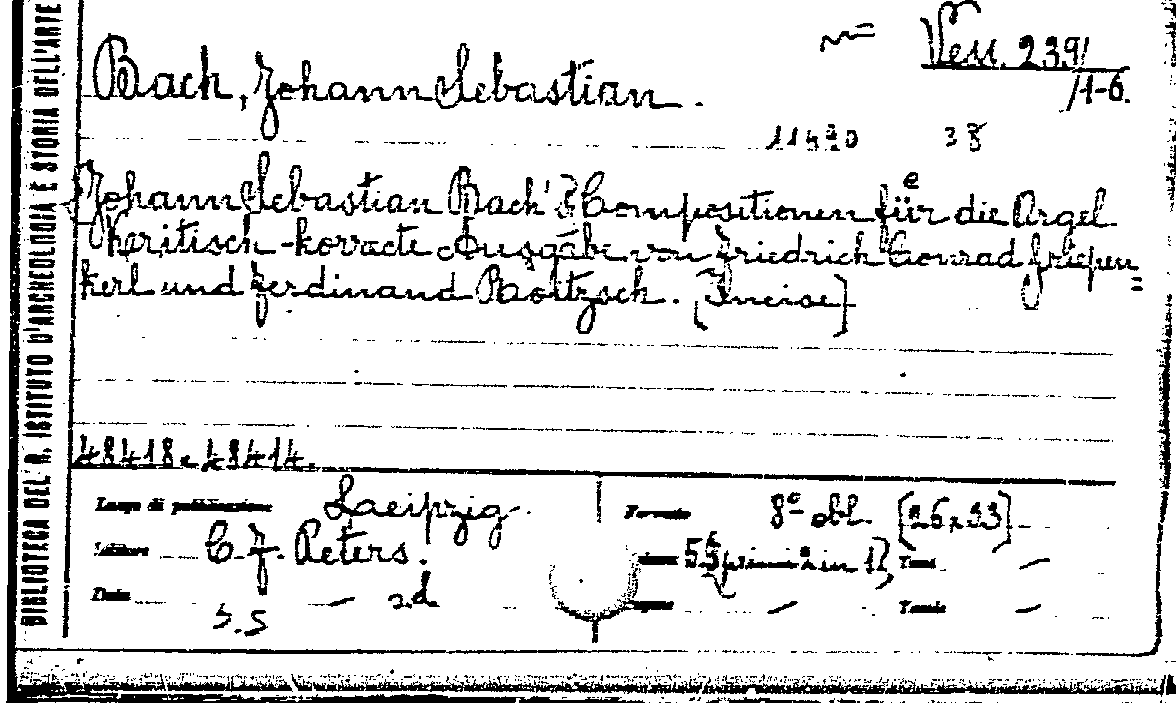 BIBLIOTECA DEL R. ISTITUTO D'ARCHEOLOGIA E STORIA DELL'ARTE
Vess. 239/
/1-6.
Bach, Johann Sebastian.
38
Johann Sebastian Bach's Compositionen für die Orgel
kritisch-korrecte Ausgabe von Friedrich Conrad Griepen=
kerl und Ferdinand Roitzsch. [Incise]
48418. 48414.
Luogo di pubblicazione Laeipzig.
Formato 8° obl. [26x33]
Editore C. F. Peters.
Volumi in 1 Tomi –
Data – s.d
Pagine – Tavole –
S.S